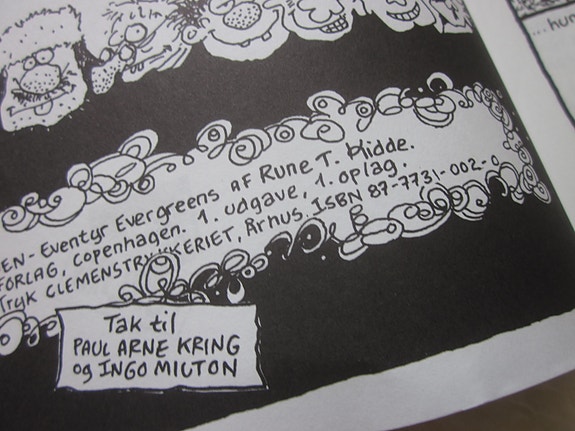 EN-Eventyr Evergreens af Rune T. Kidde.
FORLAG, Copenhagen. 1. udgave, 1. oplag.
Tryk CLEMENSTRYKKERIET, Århus. ISBN 87-7731-002-0
Tak til
PAUL ARNE KRING
og INGO MILTON
... hun